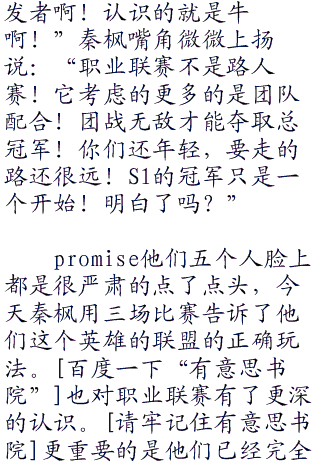 发者啊！认识的就是牛
啊！”秦枫嘴角微微上扬
说：“职业联赛不是路人
赛！它考虑的更多的是团队
配合！团战无敌才能夺取总
冠军！你们还年轻，要走的
路还很远！S1的冠军只是一
个开始！明白了吗？”
promise他们五个人脸上
都是很严肃的点了点头，今
天秦枫用三场比赛告诉了他
们这个英雄的联盟的正确玩
法。[百度一下“有意思书
院”]也对职业联赛有了更深
的认识。[请牢记住有意思书
院]更重要的是他们已经完全